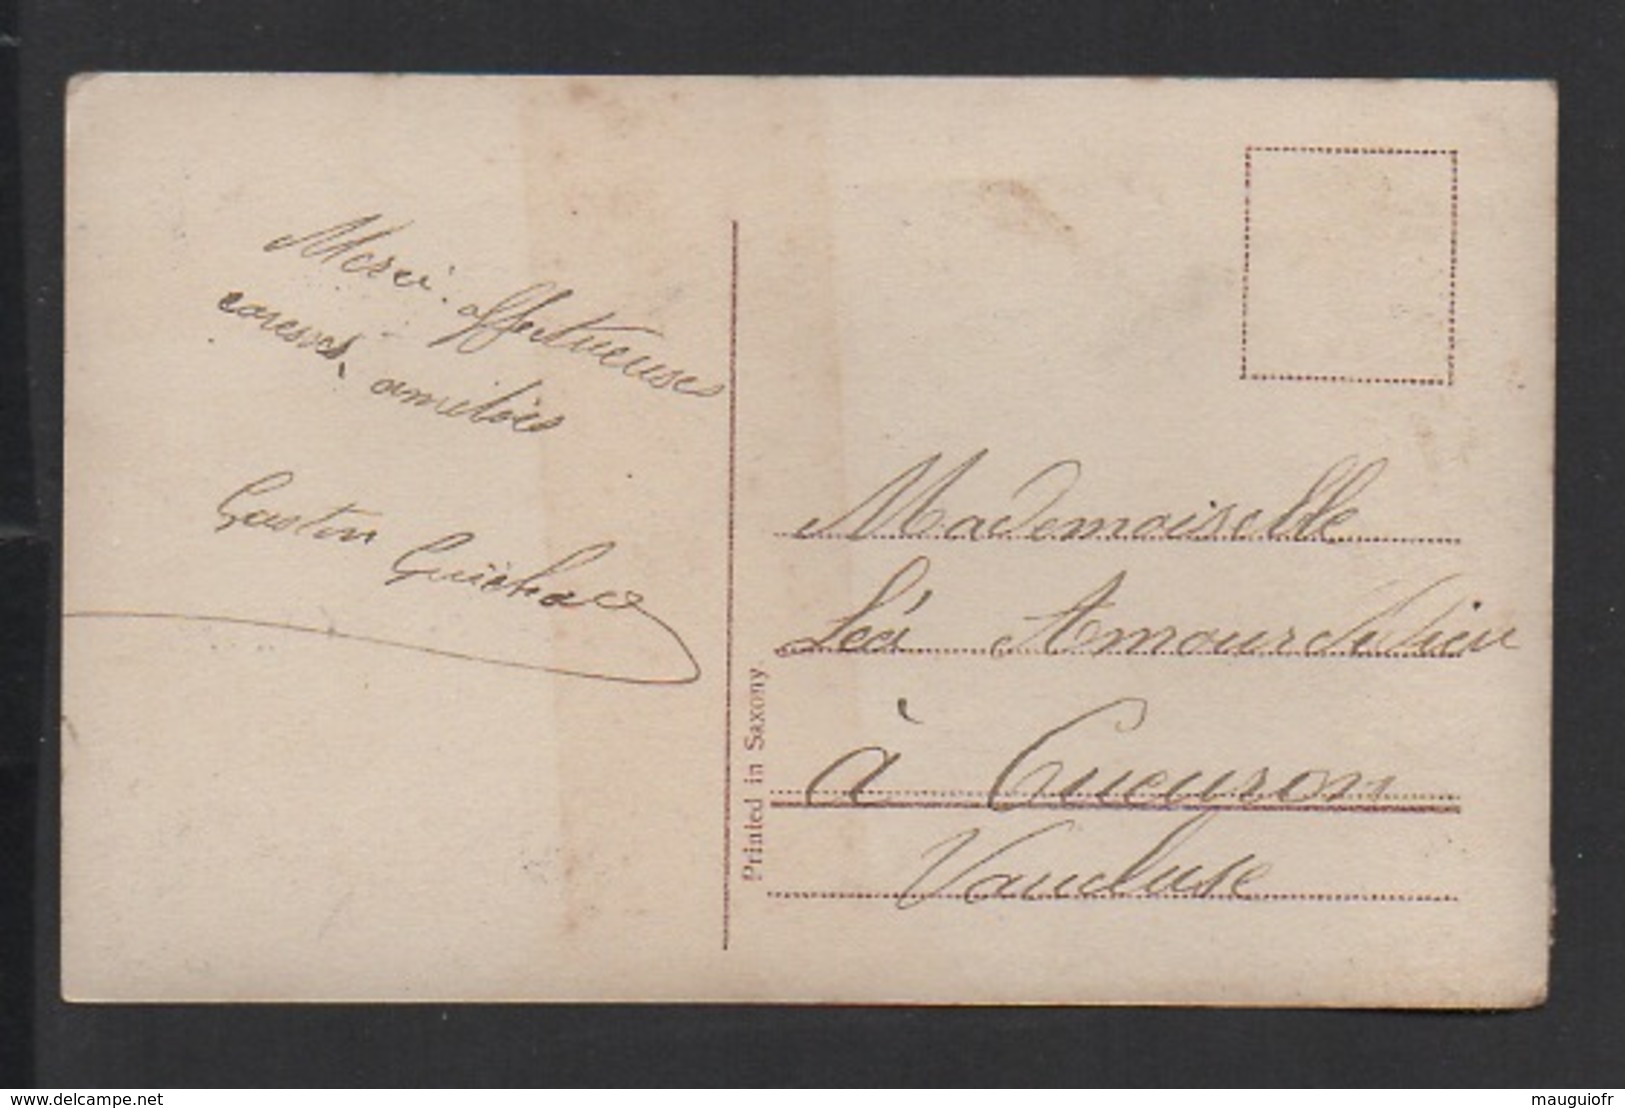 Merci. affectueuses
caresses, amitiés
Gaston
Mademoiselle
Léa Amourdedieu
à Cucuron
Vaucluse
Printed in Saxony
www.delcampe.net
mauguiofr